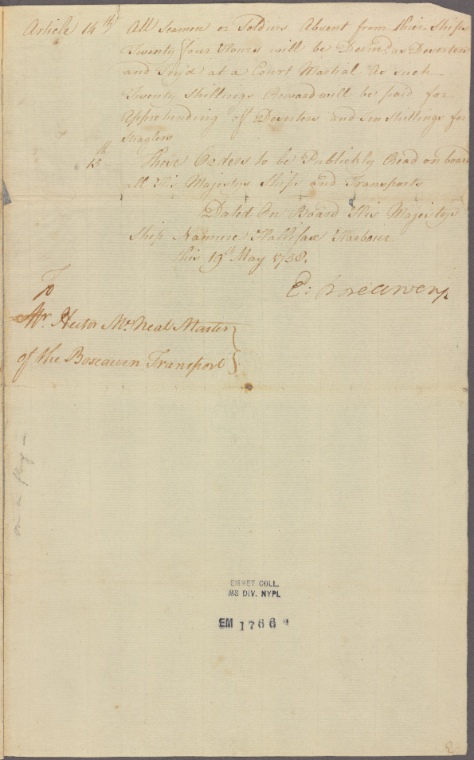 Article 14th All Seamen or Soldiers Absent from their Ships
Twenty four Hours will be Deem'd as Deserters
and Try'd at a Court Martial as Such
Twenty Shillings Reward will be paid for
Apprehending of Deserters and Ten Shillings for
Straglers
15th These Orders to be Publickly Read on board
all His Majestys Ships and Transports
Dated On Board His Majestys
Ship Namure Hallifax Harbour
this 19th May 1758.
E: Boscawen
To
Mr. Hector McNeal Master
of the Boscawen Transport
EMMET COLL.
MS DIV. NYPL
EM 1766